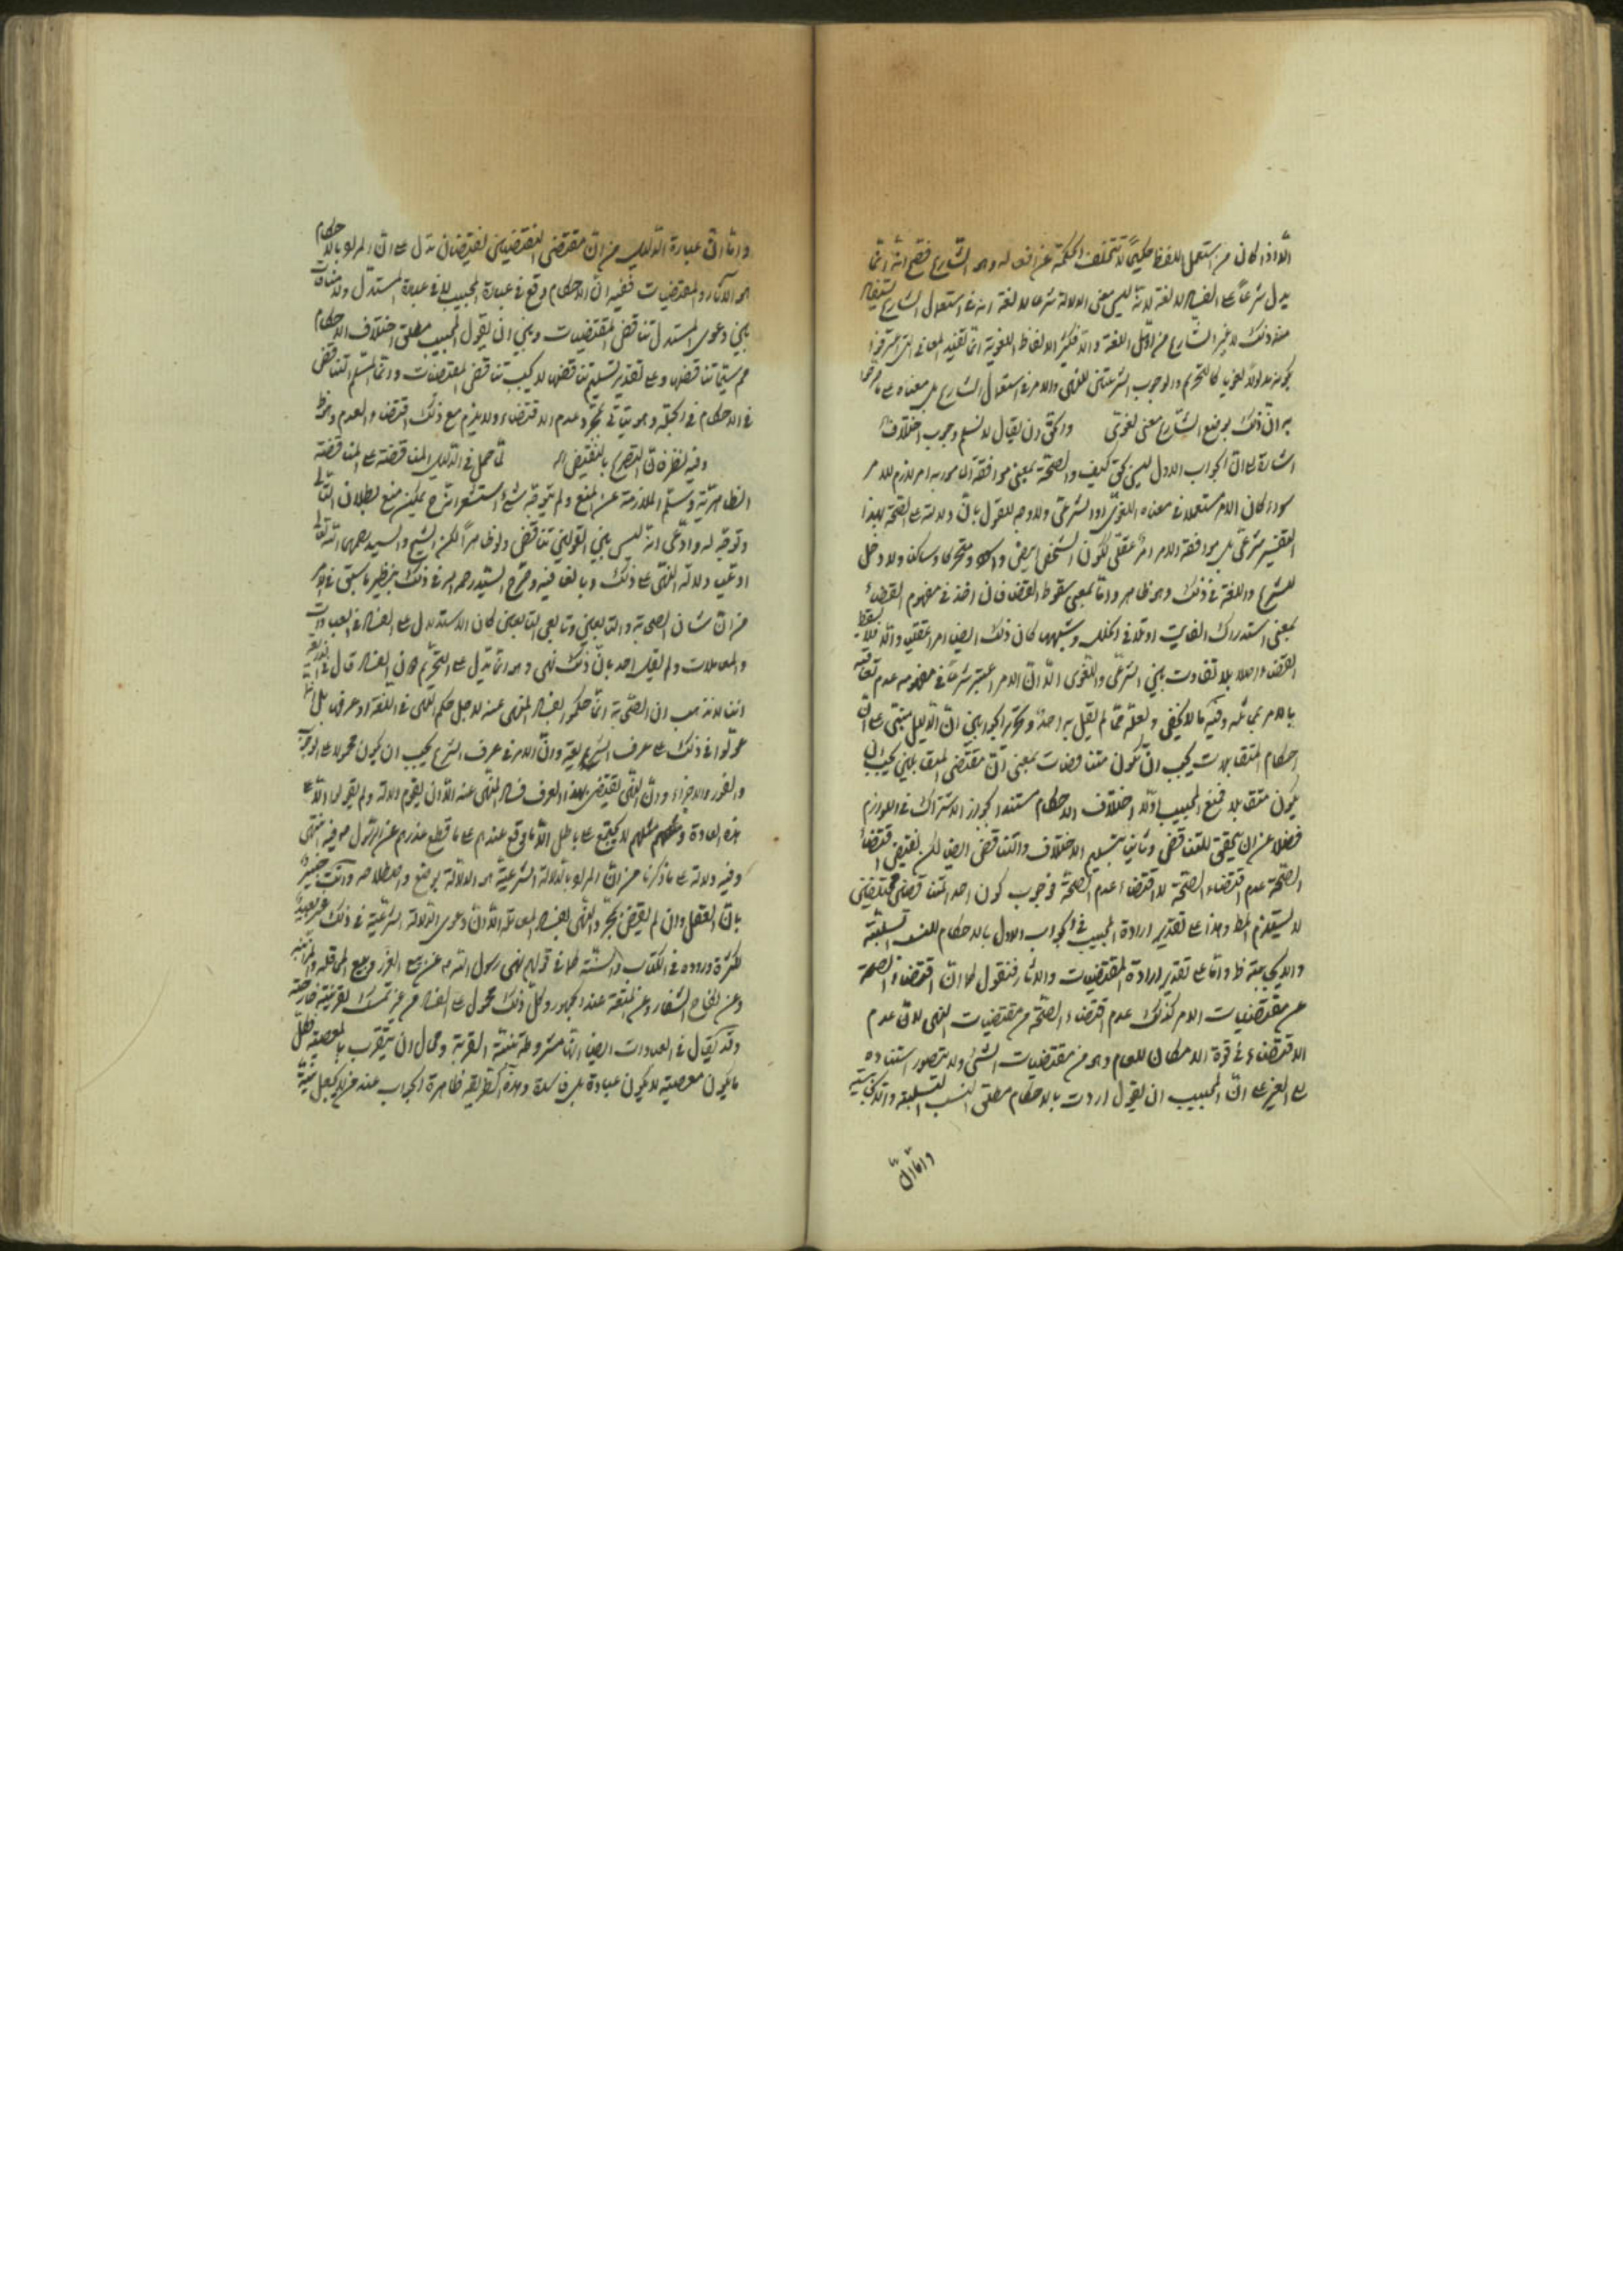 الّا اذا كان من استعمل اللفظ حكيمًا لا تتخلف الحكمة عن افعاله وهو الشارع فصح انه انما
يدل شرعًا على الفساد لا لغة لانه ليس معنى الدلالة شرعا لا لغة انه في استعمال الشارع
منه ذلك لا غير الشارع من اهل اللغة والا فكثير الالفاظ اللغوية انما تفيد المعاني التي
يكون مدلولا لغويا كالتحريم والوجوب الشرعيتين للنهي والامر في استعمال الشارع بل معناه على ما
به ان ذلك بوضع الشارع معنى لغوى والحق ان يقال لا نسلم وجوب اختلاف
اشارة الى ان الجواب الاول ليس بحق كيف والصحة بمعنى موافقة المامور به امر لازم للامر
سواء كان الامر مستعملا في معناه اللغوى او الشرعى ولا وجه للقول بان دلالته على الصحة بهذا
التفسير شرعى بل موافقة الامر امر عقلى ككون الشخص ابيض واسود ومتحركا وساكنا ولا دخل
للشرع واللغة في ذلك وهو ظاهر واما بمعنى سقوط القضاء فان اخذ في مفهوم القضاء
بمعنى استدراك الفايت او تلافى الخلل وشبههما كان ذلك ايضا امرا عقليا والا فلا
القضاء اصلا بلا تفاوت بين الشرعى واللغوى الا ان الامر اعتبر شرعا في مفهومه عدم تعاقبه
بالامر بمماثله وفيه ما لا يخفى ولعله مما لم يقل به احد وتحرير الجوابين ان الدليل مبتنى على ان
احكام المتقابلات يجب ان تكون متناقضات بمعنى ان مقتضى المتقابلين يجب ان
يكون متقابلا فمنع المجيب اولا اختلاف الاحكام مستندا بجواز الاشتراك في اللوازم
فضلا عن ان يتحقق التناقض وثانيا بتسليم الاختلاف والتناقض ايضا لكن نقيض اقتضاء
الصحة عدم اقتضاء الصحة لا اقتضاء عدم الصحة فوجوب كون احد المتناقضين مقتضيين
لا يستلزم المط وهذا على تقدير ارادة المجيب في الجواب الاول بالاحكام للنسب السلبية
والايجابية ظ واما على تقدير ارادة المقتضيات والاثار فنقول كما ان اقتضاء الصحة
من مقتضيات الامر كذلك عدم اقتضاء الصحة من مقتضيات النهى لان عدم
الاقتضاء في قوة الامكان العام وهو من مقتضيات الشئ ولا يتصور استناده
الى الغير على ان المجيب ان يقول اردت بالاحكام مطلق النسب السلبية والايجابية
واما ان
واما ان عبارة الدليل من ان مقتضى النقيضين نقيضان تدل على ان المراد بالاحكام
هو الآثار والمقتضيات ففيه ان الاحكام وقع في عبارة المجيب لا في عبارة المستدل ولا منافات
بين دعوى المستدل تناقض المقتضيات وبين ان يقول المجيب مطلق اختلاف الاحكام
مم سيما تناقضها وعلى تقدير تسليم تناقضها لا يجب تناقض المقتضيات وانما المسلم التناقض
في الاحكام في الجملة وهو يتاتى بمجرد عدم الاقتضاء ولا يلزم مع ذلك اقتضاء العدم وهو ظ
وفيه نظر فان التصريح بالنقيض اه لما حمل في الدليل المناقضة على المناقضة
الظاهرية وسلم الملازمة عن المنع ولم يتوجه شئ استشعر الشرح يمكن منع بطلان التالى
وتوجه له وادعى انه ليس بين القولين تناقض ولو ظاهرا لكن الشيخ والسيد رحمهما الله تعالى
ادعيا دلالة النهى على ذلك وبالغا فيه وصرح السيد رحمه الله في ذلك بنظير ما سبق في الامر
من ان شان الصحابة والتابعين وتابعى التابعين كان الاستدلال على الفساد في العبادات
والمعاملات ولم يقل احد بان ذلك نهى وهو انما تدل على التحريم فاين الفساد قال في
اننا لا نذهب ان الصحابة انما حكموا بفساد المنهى عنه لاجل حكم النهى في اللغة او عرف بل
عولوا في ذلك على عرف الشريعة وان الامر في عرف الشرع يجب ان يكون محمولا على الوجوب
والفور والاجزاء وان النهى يقتضى بهذا العرف فساد المنهى عنه الا ان يقوم دلالة ولم يقولوا الا على
هذه العادة ومثلهم لا يجتمع على باطل الا ما وقع عندهم على ما قطع عذرهم عن الرسول ص فيه انتهى
وفيه دلالة على ما ذكرنا من ان المراد بالدلالة الشرعية هو الدلالة بوضع واصطلاحه وانت خبير
بان العقل وان لم يقتض بمجرد النهى بفساد المعاملة الا ان دعوى الدلالة الشرعية في ذلك غير بعيد
لكثرة وروده في الكتاب والسنة كما في قوله نهى رسول الله ص عن بيع الغرر وبيع المحاقلة والمزابنة
وعن نكاح الشغار وعن المتعة عند الجمهور وكل ذلك محمول على الفساد من غير تمسك بقرينة خارجة
وقد يقال في العبادات ايضا انها مشروطة بنية القربة ومحال ان يتقرب بالمعصية فكل
ما يكون معصية لا يكون عبادة بل فاسدة وهذه الطريقة ظاهرة الجواب عند من لا يجعل نية